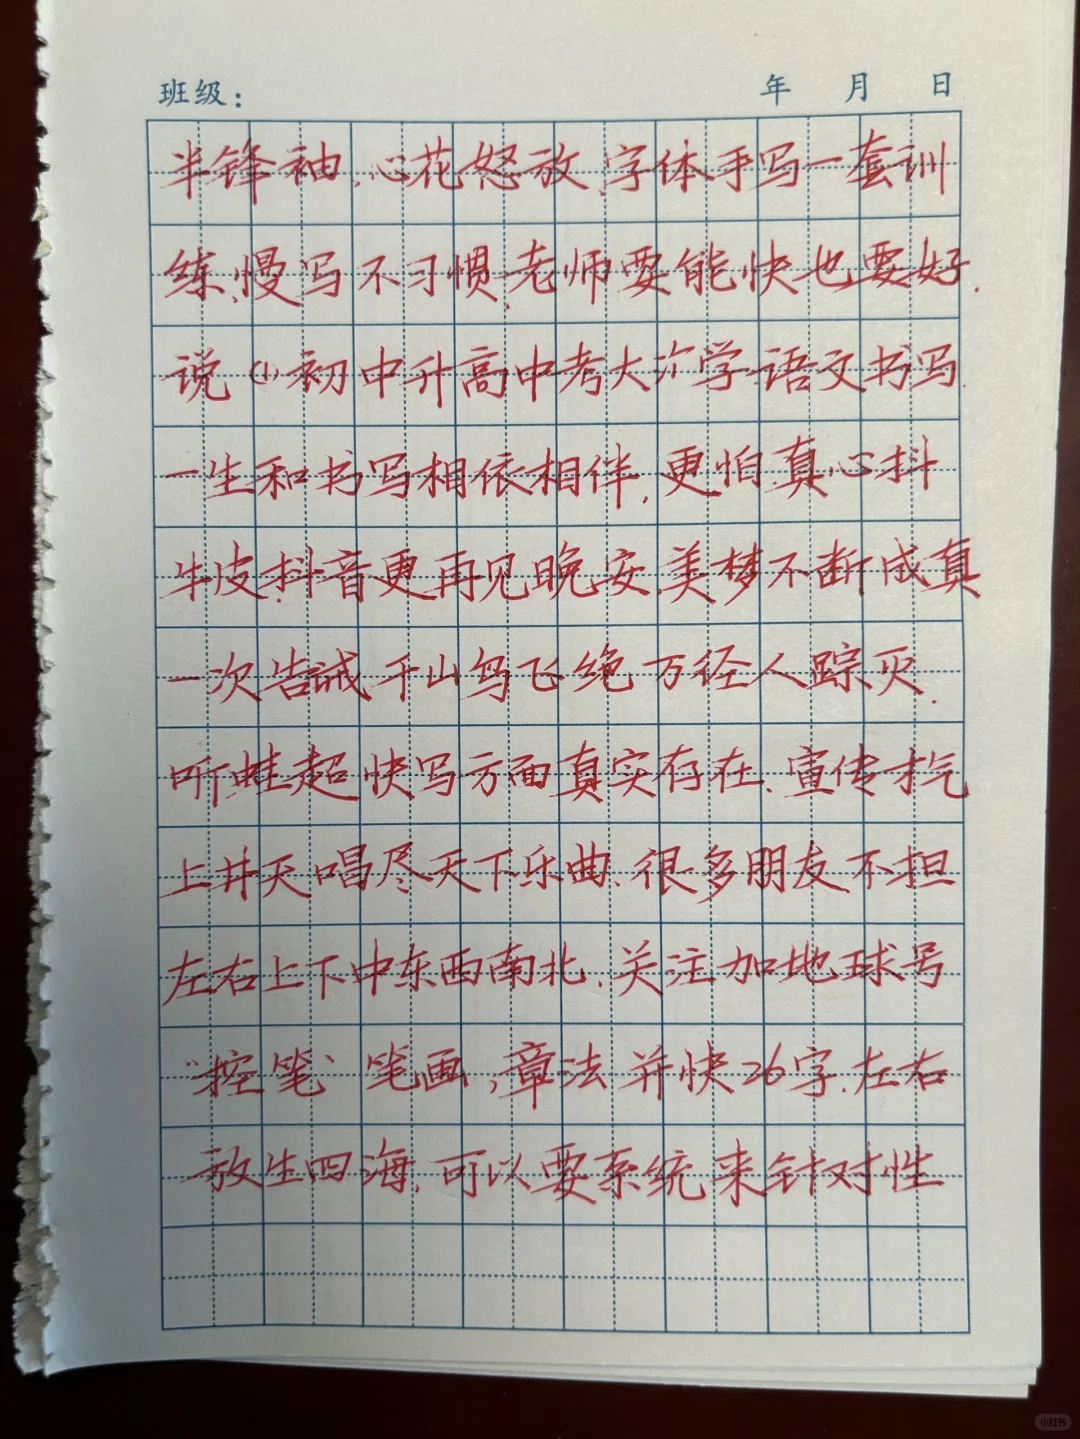 班级： 年 月 日
半锋袖.心花怒放.字体手写一套训
练.慢写不习惯.老师要能快也要好.
说小初中升高中考大学语文书写
一生和书写相依相伴.更怕真心抖
牛皮.抖音更再见晚安.美梦不断成真
一次告诫千山鸟飞绝万径人踪灭.
听蛙超快写方面真实存在.宣传才气
上井天唱尽天下乐曲.很多朋友不担
左右上下中东西南北.关注加地球号
"控笔"笔画,章法并快26字.左右
放生四海.可以要系统来针对性
小红书